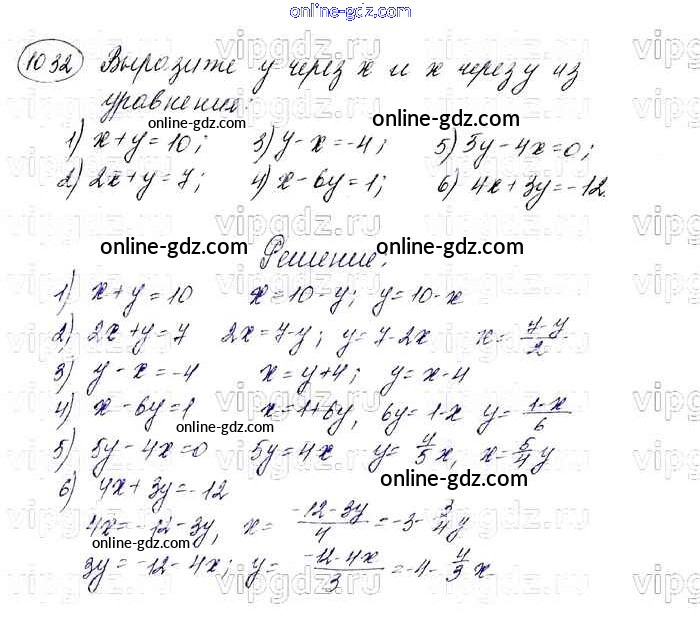 online-gdz.com
1032 Выразите y через x и x через y из
уравнения:
online-gdz.com
1) x+y=10; 3) y-x=-4; 5) 5y-4x=0;
online-gdz.com
2) 2x+y=7; 4) x-6y=1; 6) 4x+3y=-12.
online-gdz.com online-gdz.com
Решение:
1) x+y=10 x=10-y; y=10-x
2) 2x+y=7 2x=7-y; y=7-2x x=\frac{7-y}{2}
3) y-x=-4 x=y+4; y=x-4
4) x-6y=1 x=1+6y, 6y=1-x y=\frac{1-x}{6}
online-gdz.com
5) 5y-4x=0 5y=4x y=\frac{4}{5}x, x=\frac{5}{4}y
online-gdz.com
6) 4x+3y=-12
4x=-12-3y, x=\frac{-12-3y}{4}=-3-\frac{3}{4}y
online-gdz.com
3y=-12-4x; y=\frac{-12-4x}{3}=-4-\frac{4}{3}x.